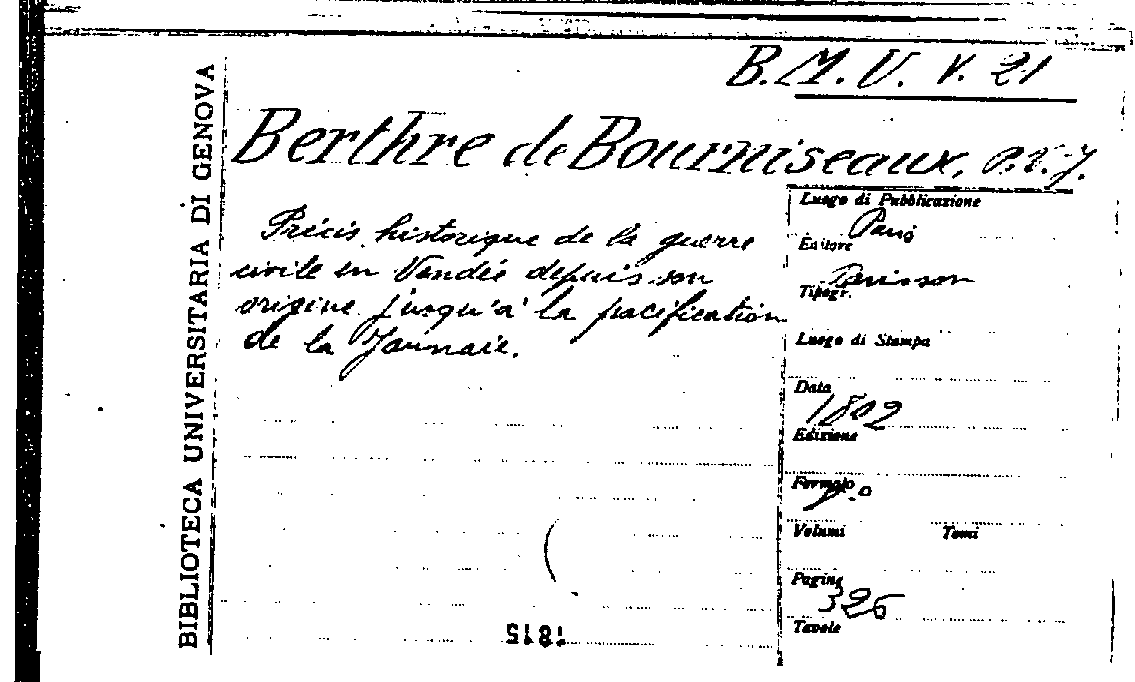 B.M.U. V. 21
BIBLIOTECA UNIVERSITARIA DI GENOVA
Berthre de Bourniseaux, P.V.J.
Précis historique de la guerre
civile en Vendée depuis son
origine jusqu'à la pacification
de la Jaunaie.
Luogo di Pubblicazione
Paris
Editore
Buisson
Tipogr.
Luogo di Stampa
Data
1802
Edizione
Formato
8.o
Volumi Tomi
Pagine
326
Tavole